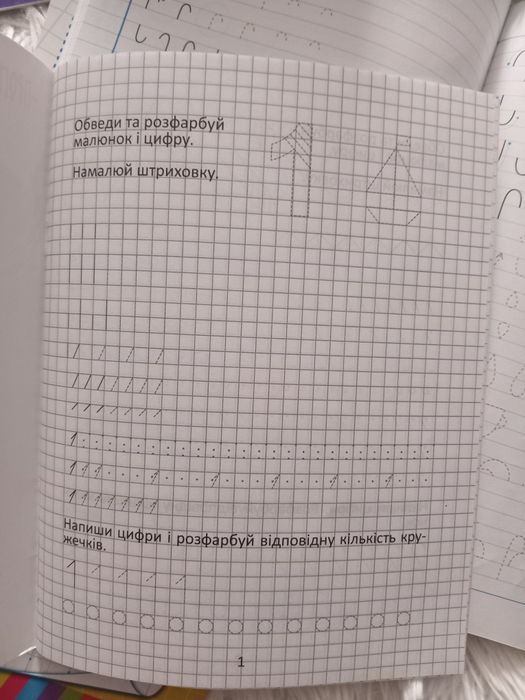 Обведи та розфарбуй
малюнок і цифру.
Намалюй штриховку.
1
1 1 1 1 1 1 1 1
1 1 1 1 1 1 1
Напиши цифри і розфарбуй відповідну кількість кру-
жечків.
1
1